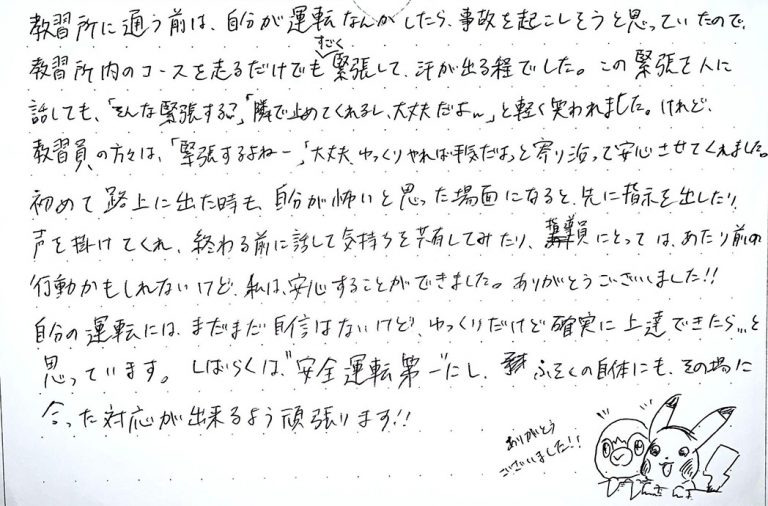 教習所に通う前は、自分が運転なんかしたら、事故を起こしそうと思っていたので、
教習所内のコースを走るだけでもすごく緊張して、汗が出る程でした。この緊張を人に
話しても、「そんな緊張する?」「隣で止めてくれるし、大丈夫だよw」と軽く笑われました。けれど、
教習員の方々は、「緊張するよねー」「大丈夫、ゆっくりやれば平気だよ」と寄り沿って安心させてくれました。
初めて路上に出た時も、自分が怖いと思った場面になると、先に指示を出したり
声を掛けてくれ、終わる前に話して気持ちを共有してみたり、指導員にとっては、あたり前の
行動かもしれないけど、私は、安心することができました。ありがとうございました!!
自分の運転には、まだまだ自信はないけど、ゆっくりだけど確実に上達できたら…と
思っています。しばらくは、"安全運転第一"にし、ふそくの自体にも、その場に
合った対応が出来るよう頑張ります!!
ありがとう
ございました!!